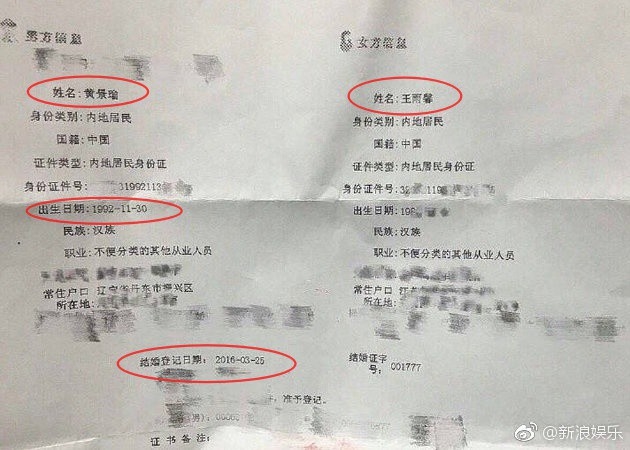 男方信息
姓名:黄景瑜
身份类别:内地居民
国籍:中国
证件类型:内地居民身份证
身份证件号:31992113
出生日期:1992-11-30
民族:汉族
职业:不便分类的其他从业人员
常住户口 辽宁省丹东市振兴区
所在地:
女方信息
姓名:王雨馨
身份类别:内地居民
国籍:中国
证件类型:内地居民身份证
身份证件号:
出生日期:19
民族:汉族
职业:不便分类的其他从业人员
常住户口
所在地:
结婚登记日期: 2016-03-25
结婚证字
号:001777
准予登记。
证书备注:
@新浪娱乐